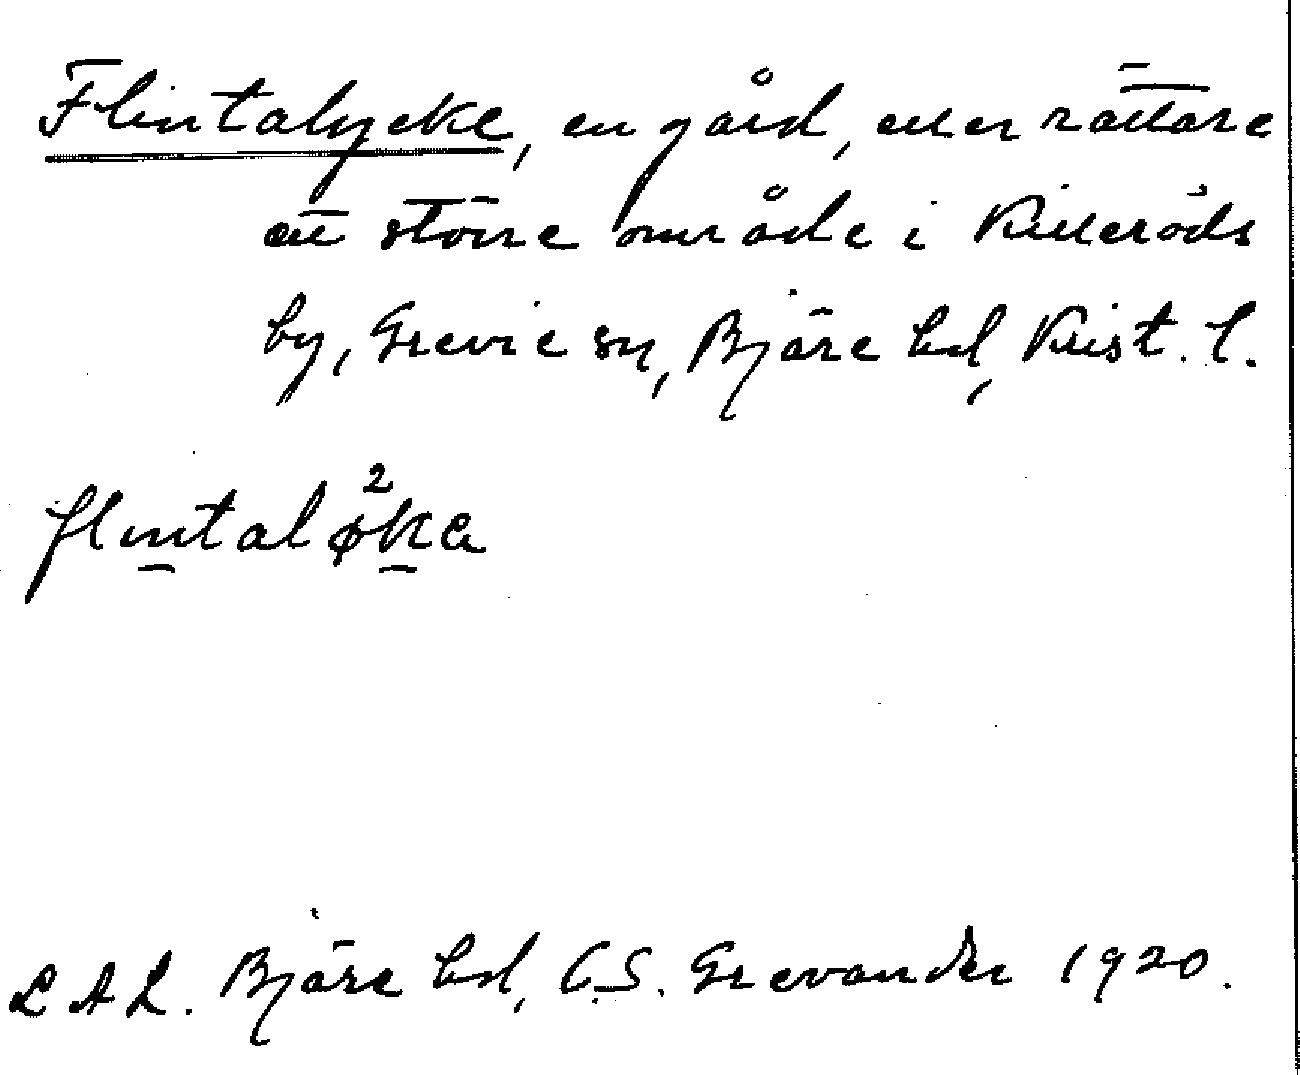 Flintalycke, en gård, eller rättare
ett större område i Killeröds
by, Grevie sn, Bjäre hd, Krist. l.
flintalø²ka
L A L. Bjäre hd, C. S. Grevander 1920.